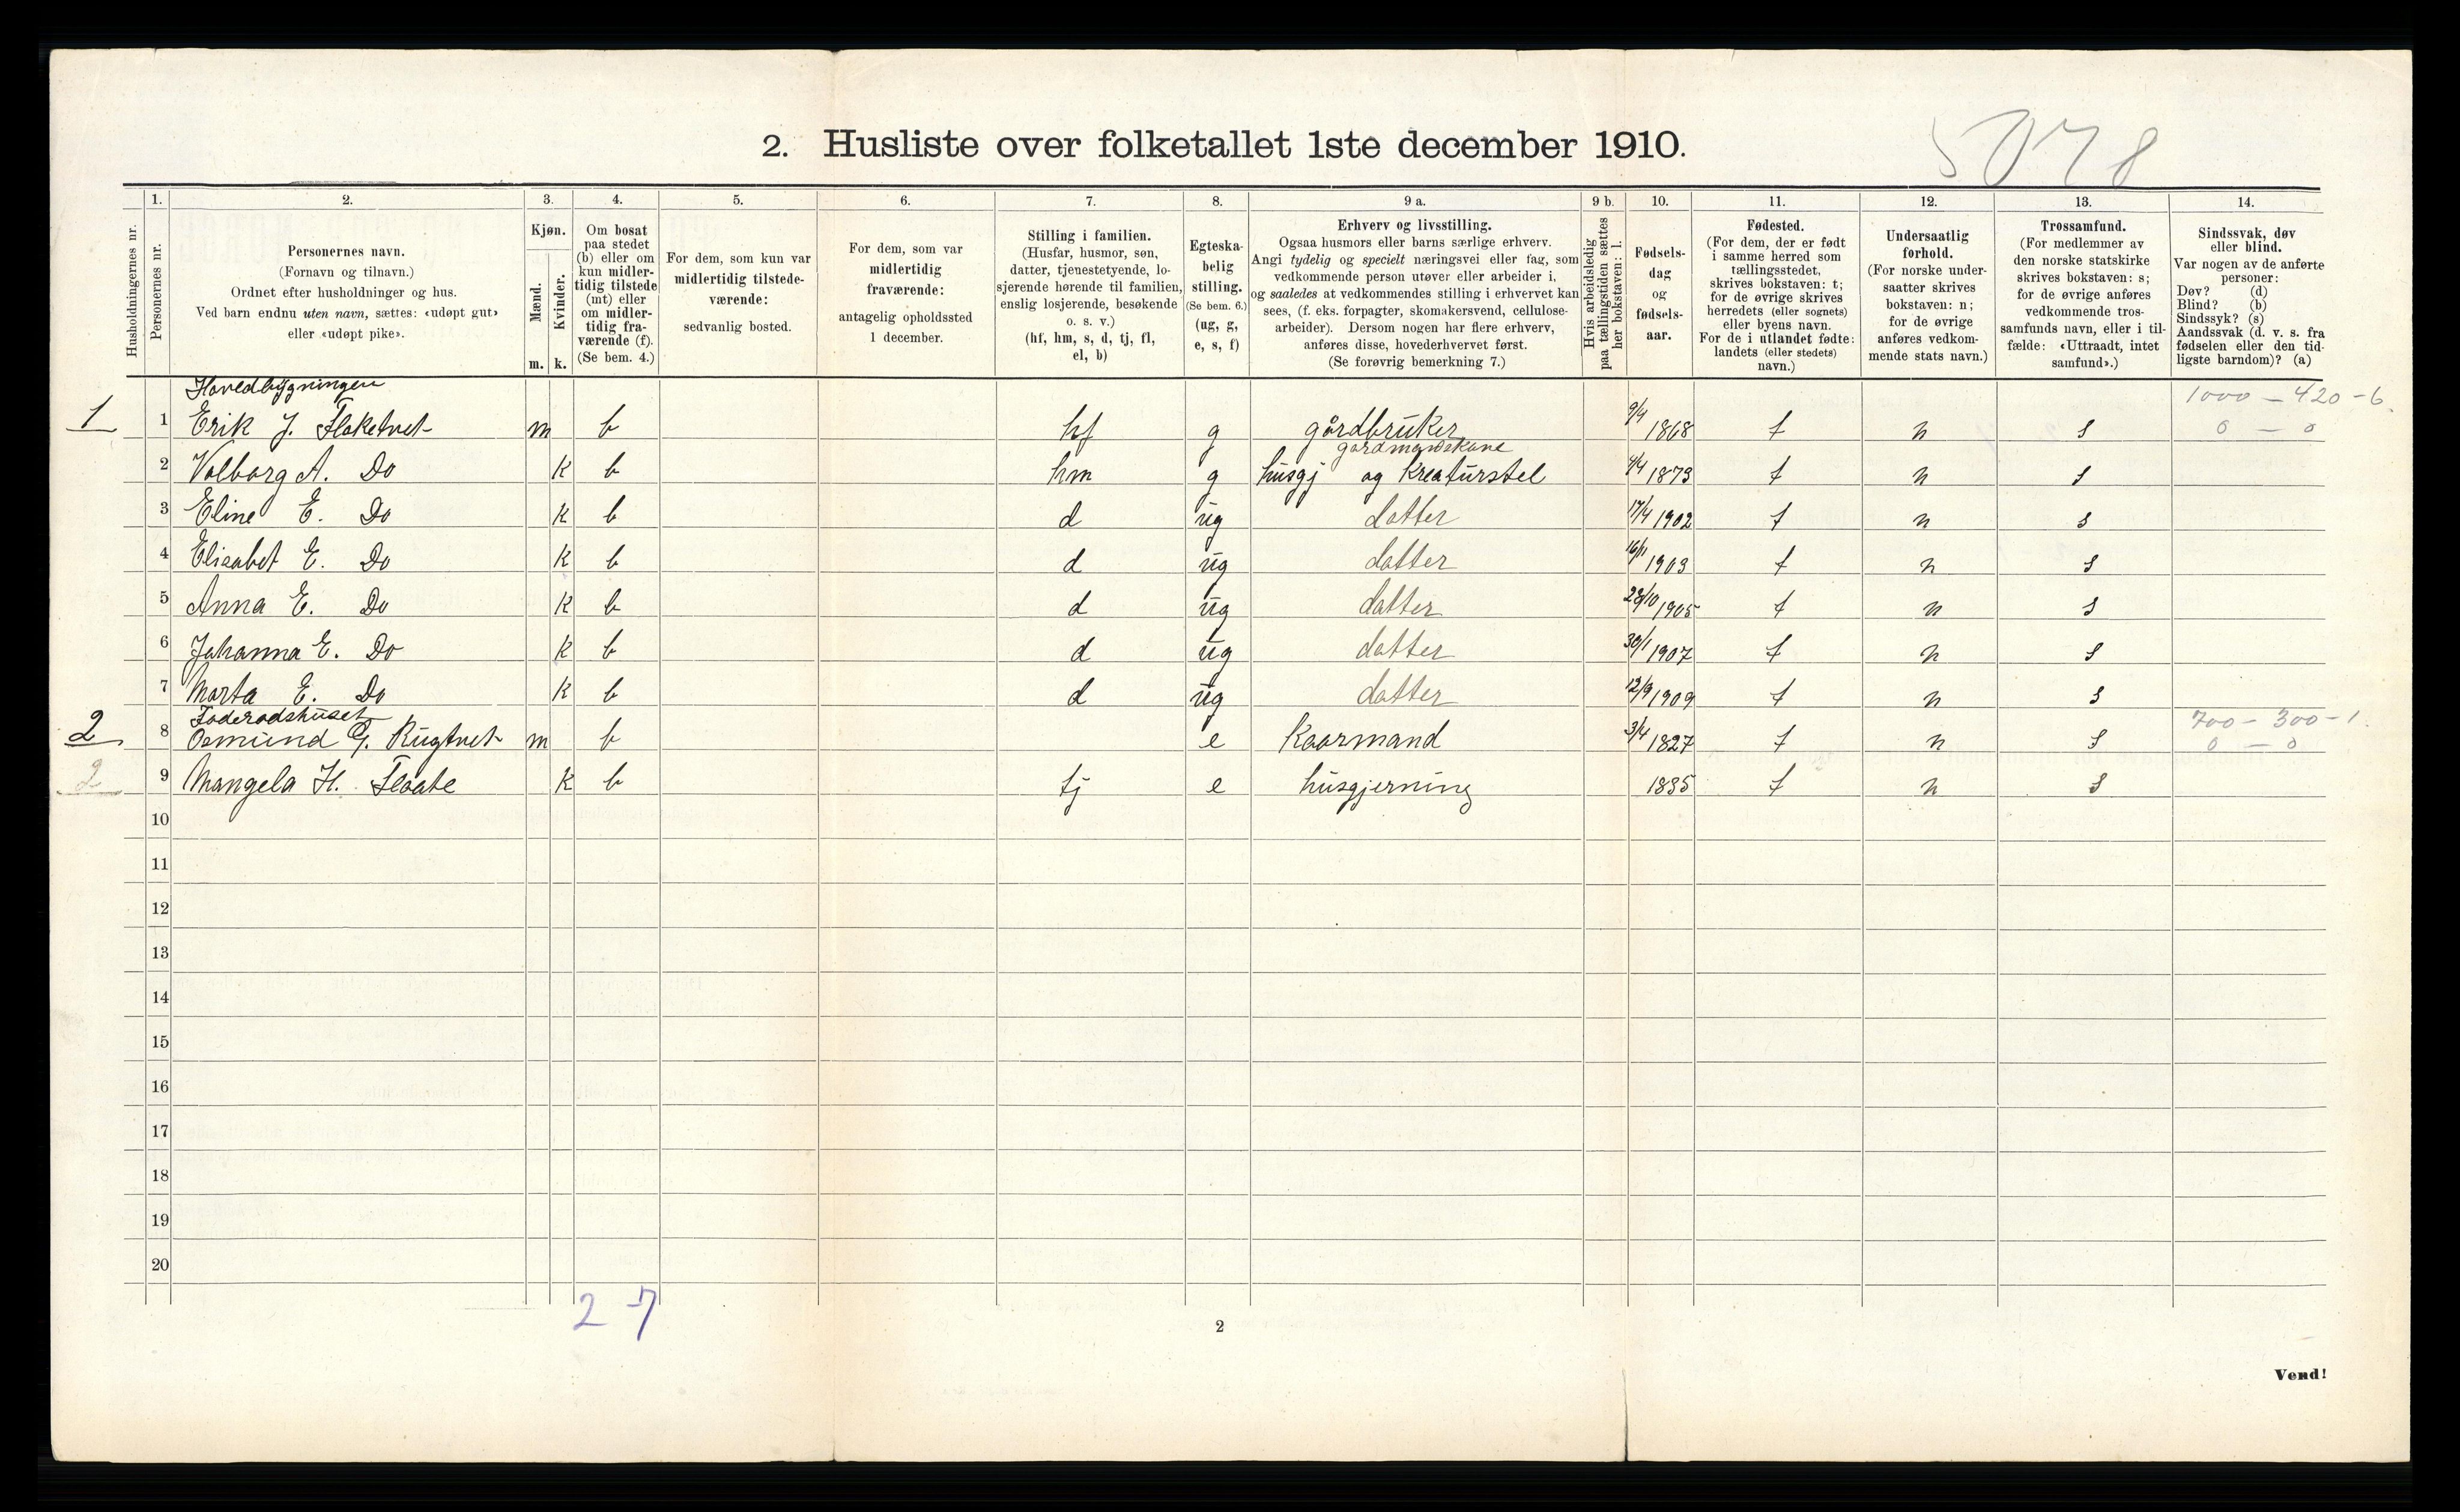 5078
2. Husliste over folketallet 1ste december 1910.
Husholdningernes nr.
1.
Personernes nr.
2.
Personernes navn.
(Fornavn og tilnavn.)
Ordnet efter husholdninger og hus.
Ved barn endnu uten navn, sættes: «udøpt gut»
eller «udøpt pike».
3.
Kjøn.
Mænd.
Kvinder.
m. k.
4.
Om bosat
paa stedet
(b) eller om
kun midler-
tidig tilstede
(mt) eller
om midler-
tidig fra-
værende (f).
(Se bem. 4.)
5.
For dem, som kun var
midlertidig tilstede-
værende:
sedvanlig bosted.
6.
For dem, som var
midlertidig
fraværende:
antagelig opholdssted
1 december.
7.
Stilling i familien.
(Husfar, husmor, søn,
datter, tjenestetyende, lo-
sjerende hørende til familien,
enslig losjerende, besøkende
o. s. v.)
(hf, hm, s, d, tj, fl,
el, b)
8.
Egteska-
belig
stilling.
(Se bem. 6.)
(ug, g,
e, s, f)
9 a.
Erhverv og livsstilling.
Ogsaa husmors eller barns særlige erhverv.
Angi tydelig og specielt næringsvei eller fag, som
vedkommende person utøver eller arbeider i,
og saaledes at vedkommendes stilling i erhvervet kan
sees, (f. eks. forpagter, skomakersvend, cellulose-
arbeider). Dersom nogen har flere erhverv,
anføres disse, hovederhvervet først.
(Se forøvrig bemerkning 7.)
9 b.
Hvis arbeidsledig
paa tællingstiden sættes
her bokstaven: l.
10.
Fødsels-
dag
og
fødsels-
aar.
11.
Fødested.
(For dem, der er født
i samme herred som
tællingsstedet,
skrives bokstaven: t;
for de øvrige skrives
herredets (eller sognets)
eller byens navn.
For de i utlandet fødte:
landets (eller stedets)
navn.)
12.
Undersaatlig
forhold.
(For norske under-
saatter skrives
bokstaven: n;
for de øvrige
anføres vedkom-
mende stats navn.)
13.
Trossamfund.
(For medlemmer av
den norske statskirke
skrives bokstaven: s;
for de øvrige anføres
vedkommende tros-
samfunds navn, eller i til-
fælde: «Uttraadt, intet
samfund».)
14.
Sindssvak, døv
eller blind.
Var nogen av de anførte
personer:
Døv? (d)
Blind? (b)
Sindssyk? (s)
Aandssvak (d. v. s. fra
fødselen eller den tid-
ligste barndom)? (a)
Hovedbygningen
1000 – 420 – 6.
1 1 Erik J. Floketvet m b hf g gårdbruker 9/4 1868 t n s 0 – 0
gårdmandskone
2 Valborg A. Do k b hm g husgj og Kreaturstel 4/4 1873 t n s
3 Eline E. Do k b d ug datter 17/4 1902 t n s
4 Elisabet E. Do k b d ug datter 16/11 1903 t n s
5 Anna E. Do k b d ug datter 28/10 1905 t n s
6 Johanna E. Do k b d ug datter 30/1 1907 t n s
7 Marta E. Do k b d ug datter 12/9 1909 t n s
Foderodshuset
700 – 300 – 1.
2 8 Osmund G. Rugtvet m b e Kaarmand 3/4 1827 t n s 0 – 0
2 9 Mangela H. Flaate k b tj e husgjerning 1835 t n s
10
11
12
13
14
15
16
17
18
19
20
2 – 7
2
Vend!